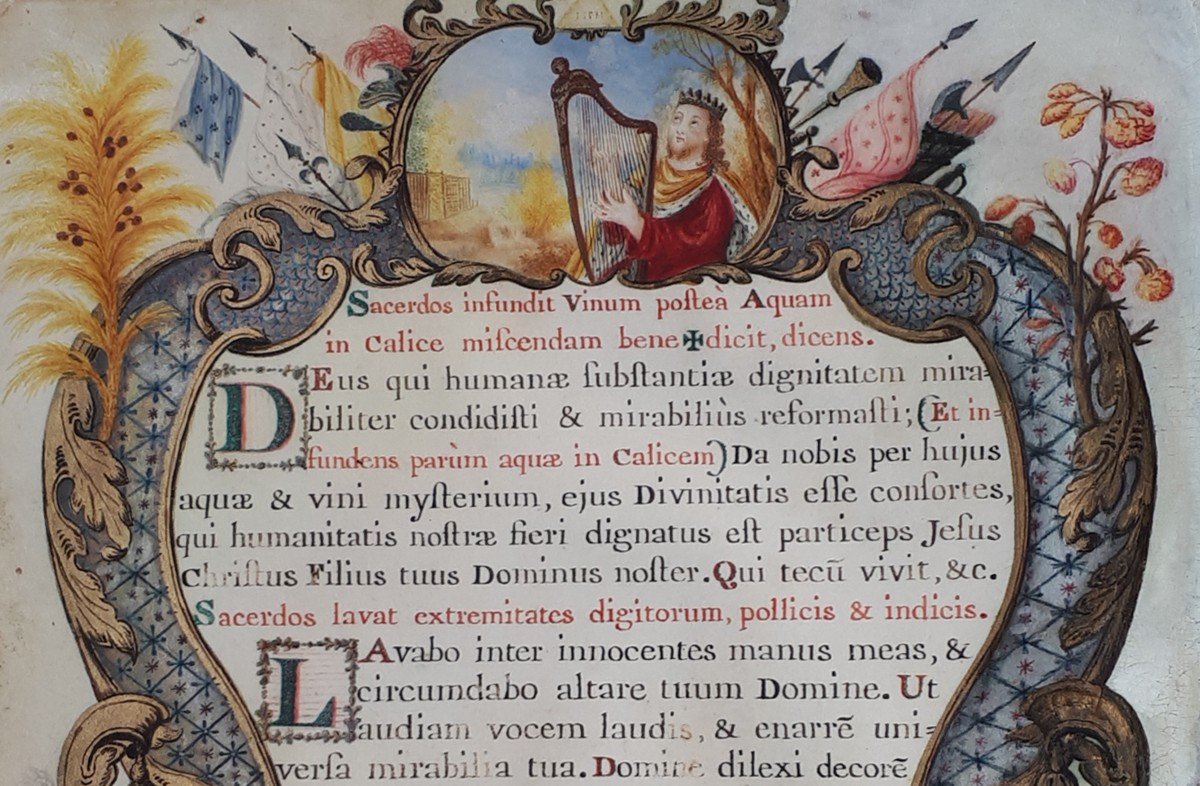 Sacerdos infundit Vinum poſteà Aquam
in Calice miſcendam bene✠dicit, dicens.
DEus qui humanæ ſubſtantiæ dignitatem mira=
biliter condidiſti & mirabiliùs reformaſti; (Et in=
fundens parùm aquæ in Calicem) Da nobis per hujus
aquæ & vini myſterium, ejus Divinitatis eſſe conſortes,
qui humanitatis noſtræ fieri dignatus eſt particeps Jeſus
Chriſtus Filius tuus Dominus noſter. Qui tecū vivit, &c.
Sacerdos lavat extremitates digitorum, pollicis & indicis.
LAvabo inter innocentes manus meas, &
circumdabo altare tuum Domine. Ut
audiam vocem laudis, & enarrē uni=
verſa mirabilia tua. Domine dilexi decorē